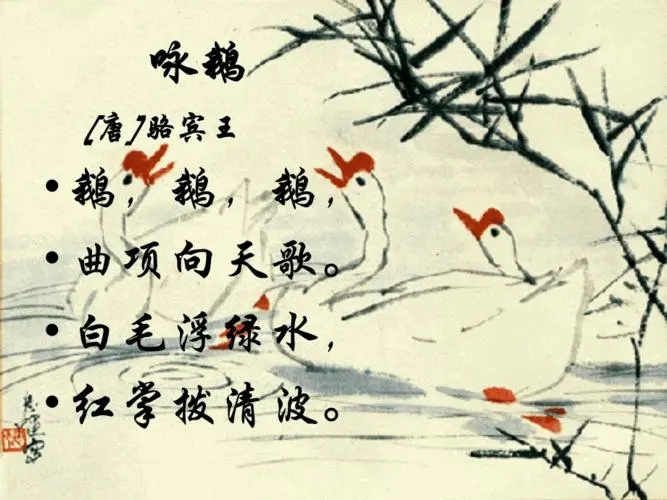 咏鹅
【唐】骆宾王
• 鹅，鹅，鹅，
• 曲项向天歌。
• 白毛浮绿水，
• 红掌拨清波。